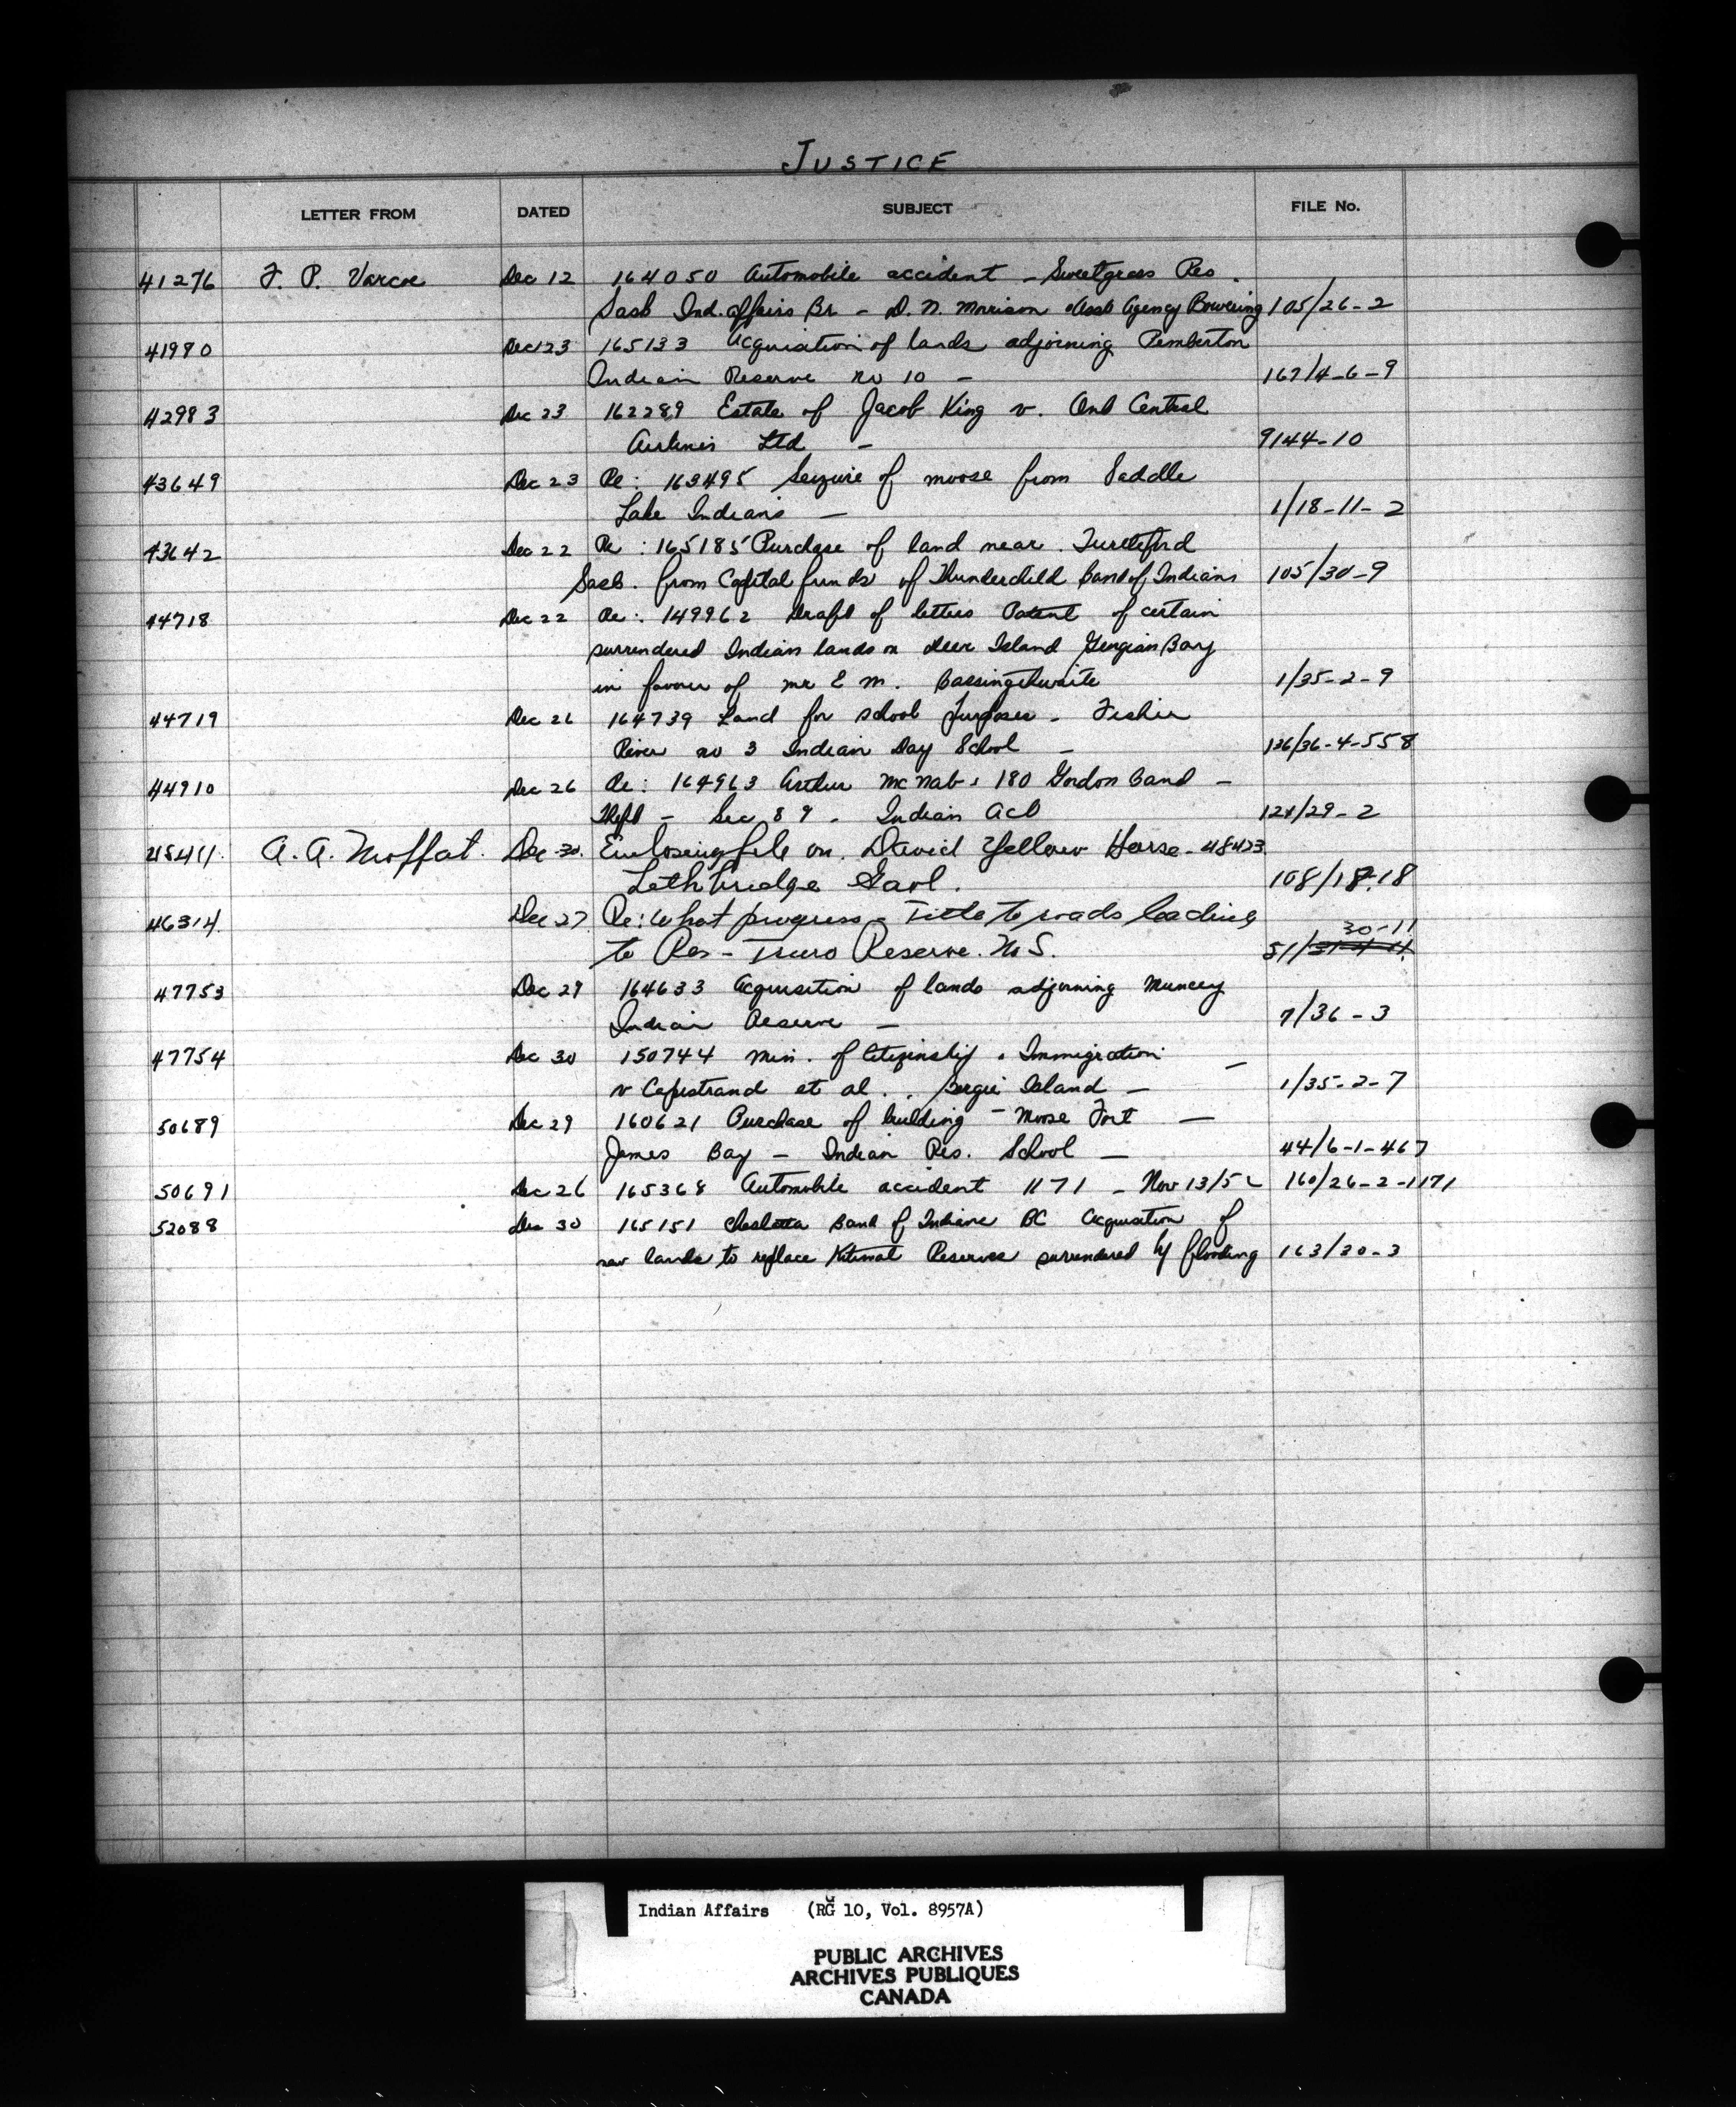 JUSTICE
LETTER FROM DATED SUBJECT FILE No.
41276 F. P. Varcoe Dec 12 164050 Automobile accident - Sweetgrass Res.
Sask Ind. Affairs Br - D. N. Morrison Asst Agency 105/26-2
41980 Dec 23 165133 Acquisition of lands adjoining Pemberton
Indian Reserve no 10 - 167/4-6-9
42983 Dec 23 162289 Estate of Jacob King v. Ont Central
Airlines Ltd - 9144-10
43649 Dec 23 Re: 163495 Seizure of moose from Saddle
Lake Indians - 1/18-11-2
43642 Dec 22 Re: 165185 Purchase of land near Turtleford
Sask. from Capital funds of Thunderchild Band of Indians 105/30-9
44718 Dec 22 Re: 149962 Draft of letters Patent of certain
surrendered Indian lands on Deer Island Georgian Bay
in favour of Mr E M. Bassingthwaite 1/35-2-9
44719 Dec 26 164739 Land for school purposes - Fisher
River no 3 Indian Day School - 126/36-4-558
44910 Dec 26 Re: 164963 Arthur McNab 180 Gordon Band -
Theft - Sec 89 - Indian Act 124/29-2
45411 A. A. Moffat. Dec 30. Enclosing file on. David Yellow Horse - 48423
Lethbridge Gaol. 108/18-18
46314 Dec 27 Re: What progress - Title to roads leading
30-11
to Res - Truro Reserve. N.S. 51/
47753 Dec 29 164633 Acquisition of lands adjoining Muncey
Indian Reserve - 7/36-3
47754 Dec 30 150744 Min. of Citizenship & Immigration -
v Capistrand et al.. Island - 1/35-2-7
50689 Dec 29 160621 Purchase of building - Moose Fort -
James Bay - Indian Res. School - 44/6-1-467
50691 Dec 26 165368 Automobile accident 1171 - Nov 13/52 160/26-2-1171
52088 Dec 30 165151 Cheslatta Band of Indians BC Acquisition of
new lands to replace Kitimat Reserves surrendered by flooding 163/30-3
Indian Affairs (RG 10, Vol. 8957A)
PUBLIC ARCHIVES
ARCHIVES PUBLIQUES
CANADA